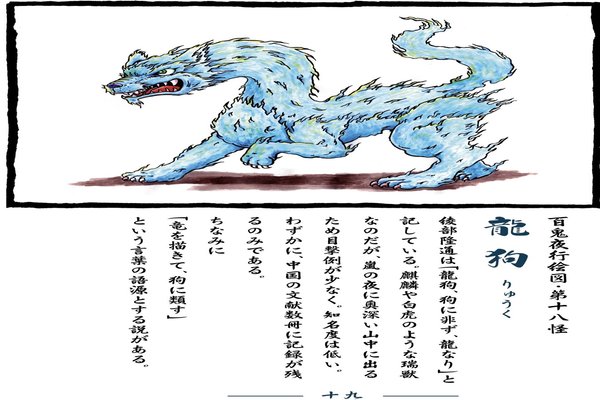 百鬼夜行絵図・第十八怪
龍狗
りゅうく
綾部隆通は「龍狗、狗に非ず、龍なり」と
記している。麒麟や白虎のような瑞獣
なのだが、嵐の夜に奥深い山中に出る
ため目撃例が少なく。知名度は低い。
わずかに、中国の文献数冊に記録が残
るのみである。
ちなみに
「竜を描きて、狗に類す」
という言葉の語源とする説がある。
十九